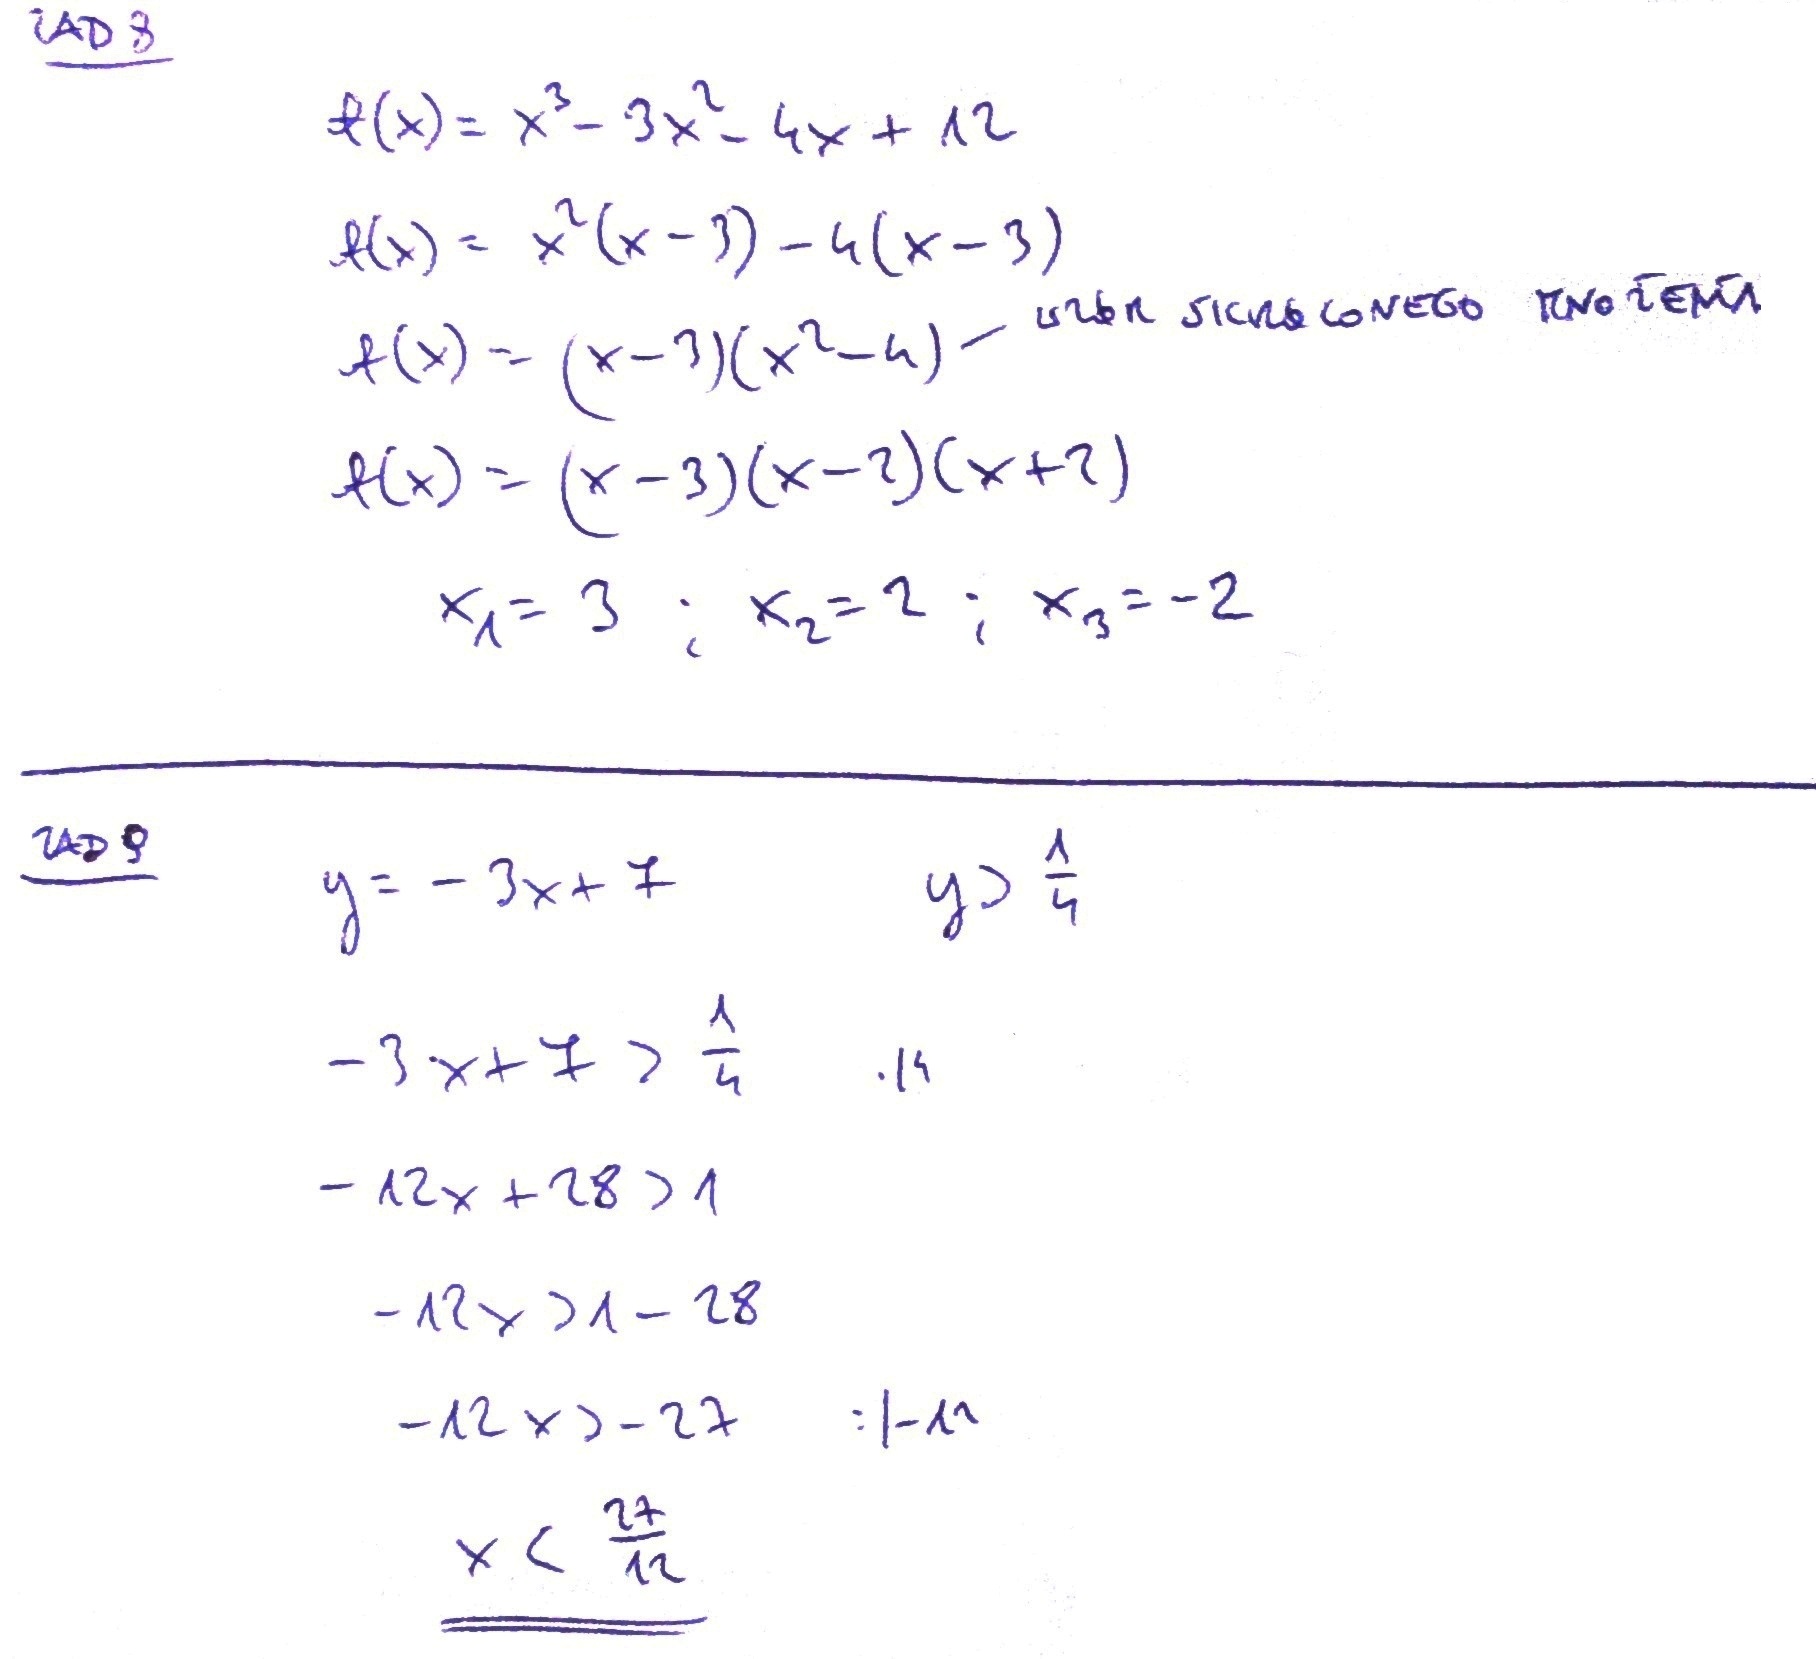 ZAD 8
f(x) = x³ - 3x² - 4x + 12
f(x) = x²(x-3) - 4(x-3)
f(x) = (x-3)(x²-4) — WZÓR SKRÓCONEGO MNOŻENIA
f(x) = (x-3)(x-2)(x+2)
x₁ = 3 ; x₂ = 2 ; x₃ = -2
ZAD 9
y = -3x + 7 y > 1/4
-3x + 7 > 1/4 ·|4
-12x + 28 > 1
-12x > 1 - 28
-12x > -27 :|-12
x < 27/12